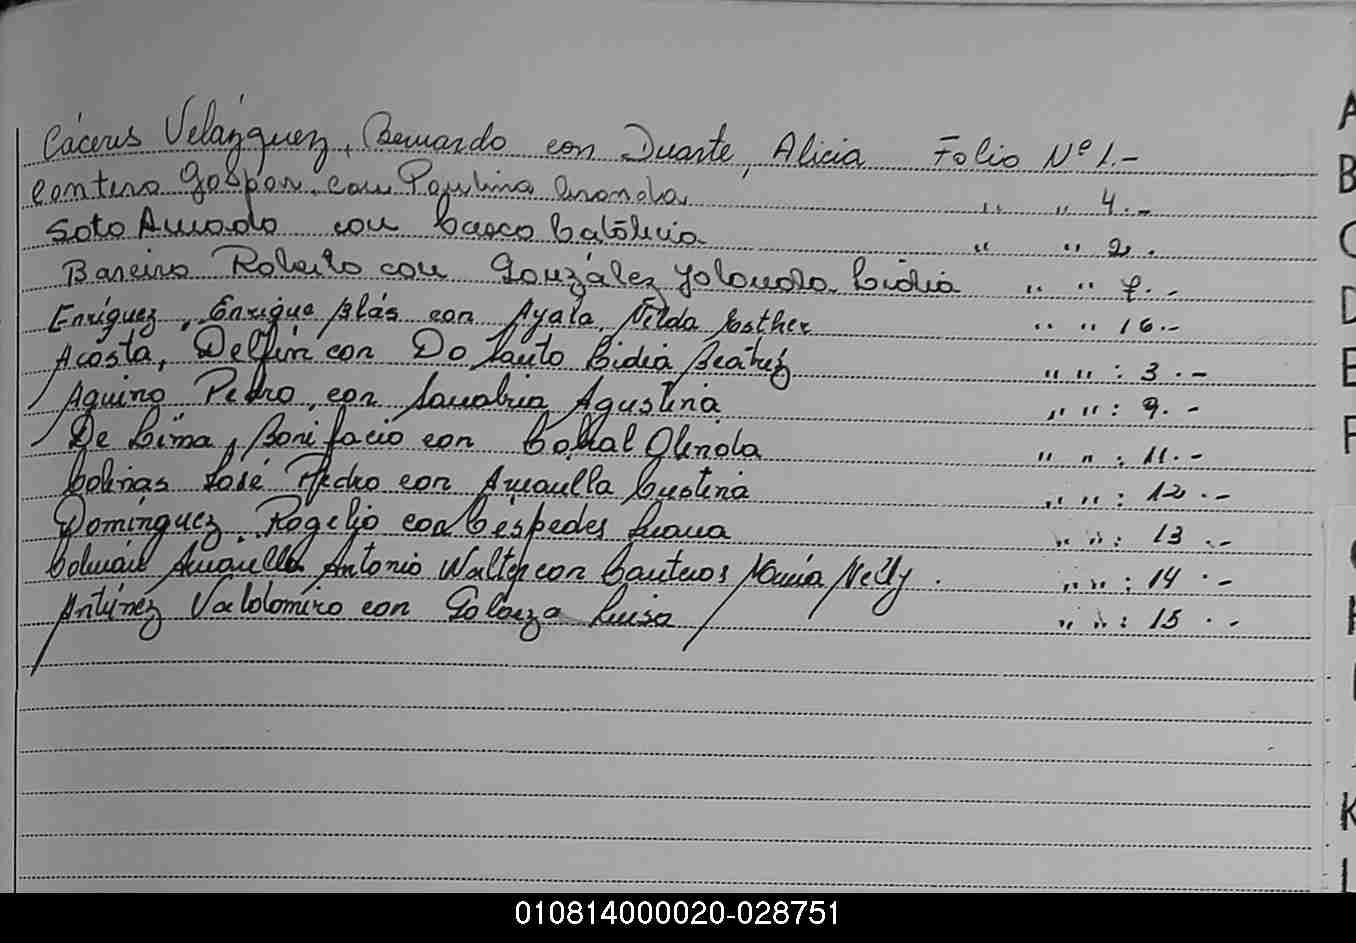 Cáceres Velázquez, Bernardo con Duarte, Alicia Folio Nº 1.-
Gaspar con Paulina " " 4.-
Soto Amado con " " 2.
Bareiro Roberto con González Yolanda Lidia " "
Enríquez, Enrique Blás con Ayala, Nilda Esther " " 16.-
Acosta, Delfín con Do Santo Lidia Beátriz " " : 3.-
Aquino Pedro, con Sanabria Agustina " " : 9.-
De Lima, Bonifacio con Glinda " " : 11.-
José Pedro con Amarilla " " : 12.-
Domínguez Rogelio con Céspedes Juana " " : 13.-
Colmán Amarilla Antonio Walter con Canteros María Nelly. " " : 14.-
Antúnez Valdomiro con Luisa " " : 15.-
A
B
C
D
E
F
K
010814000020-028751